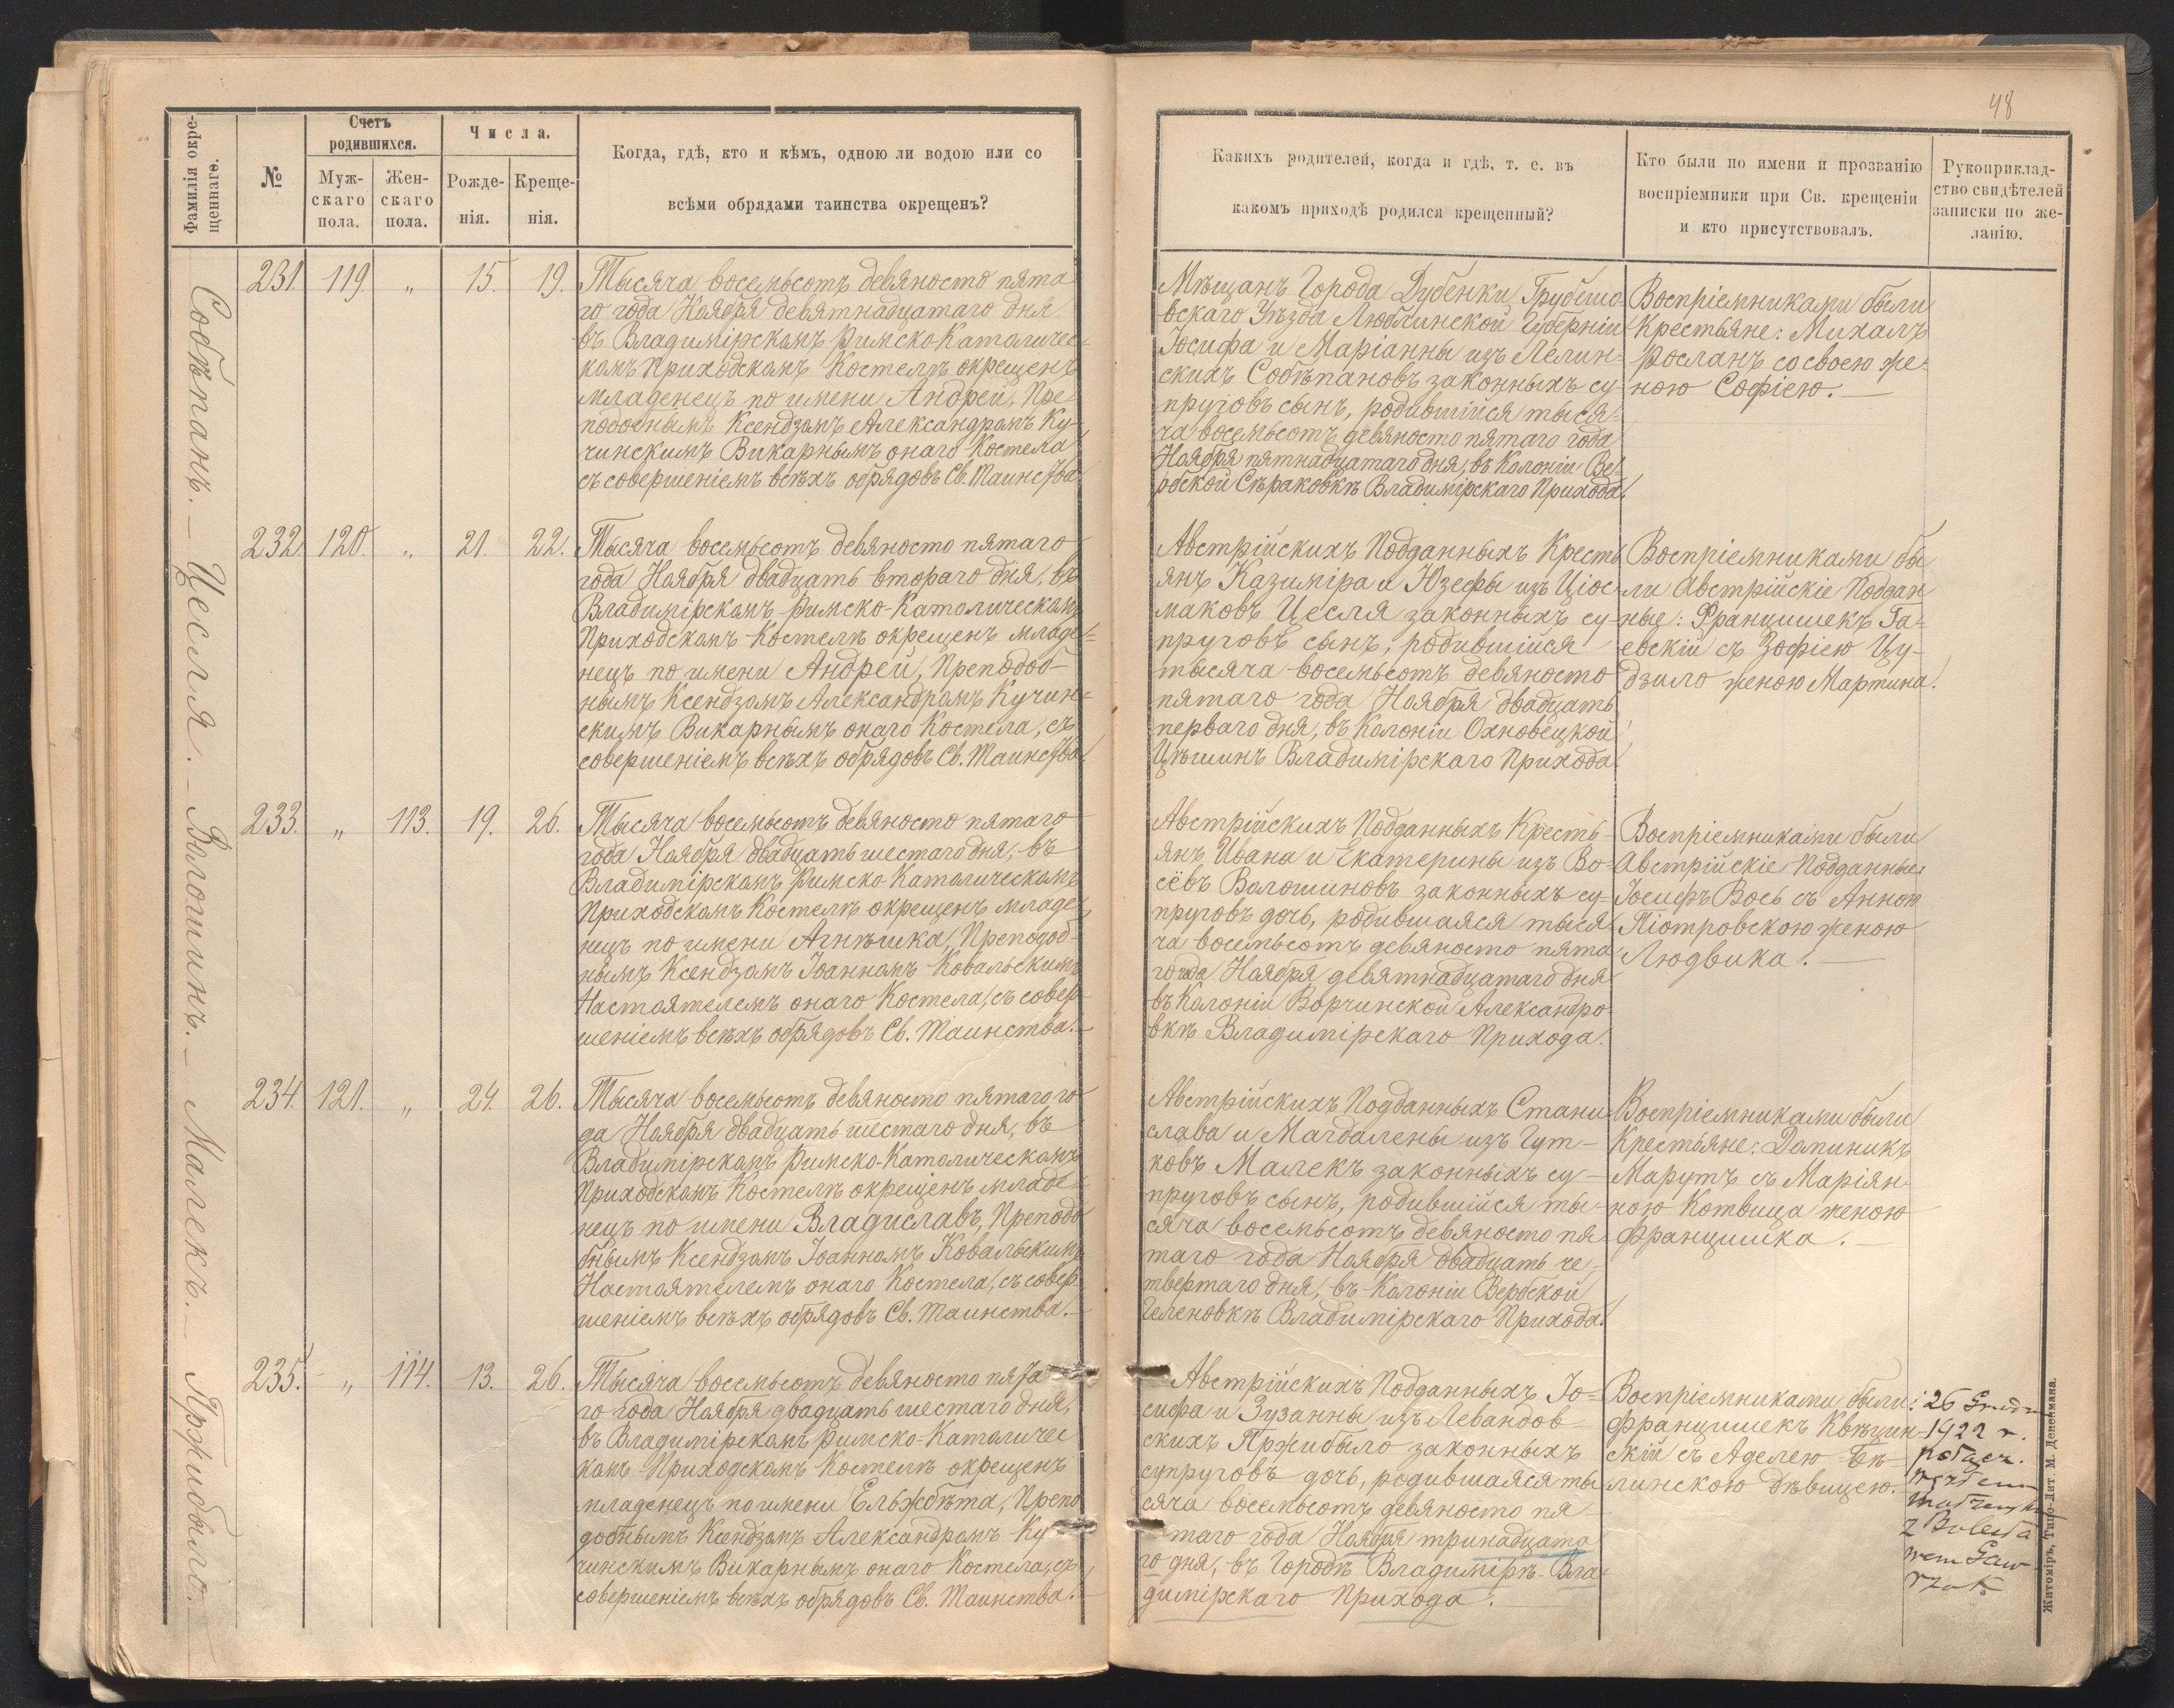 48
Фамилія окре-
щеннаго.
№
Счетъ
родившихся.
Муж-
скаго
пола.
Жен-
скаго
пола.
Числа.
Рожде-
нія.
Креще-
нія.
Когда, гдѣ, кто и кѣмъ, одною ли водою или со
всѣми обрядами таинства окрещенъ?
Какихъ родителей, когда и гдѣ, т. е. въ
какомъ приходѣ родился крещенный?
Кто были по имени и прозванію
воспріемники при Св. крещеніи
и кто присутствовалъ.
Рукоприклад-
ство свидѣтелей
записки по же-
ланію.
Собѣпанъ.
231. 119. „ 15. 19.
Тысяча восемьсотъ девяносто пята
го года Ноября девятнадцатаго дня
въ Владимірскомъ Римско-Католичес-
комъ Приходскомъ Костелѣ окрещенъ
младенецъ по имени Андрей, Пре
подобнымъ Ксендзомъ Александромъ Ку-
чинскимъ Викарнымъ онаго Костела
съ совершеніемъ всѣхъ обрядовъ Св. Таинства
Мѣщанъ Города Дубенки Грубешо
вскаго Уѣзда Люблинской Губерніи
Іосифа и Маріанны изъ Лелин-
скихъ Собѣпановъ законныхъ су-
пруговъ сынъ, родившійся тыся-
ча восемьсотъ девяносто пятаго года
Ноября пятнадцатаго дня, въ Колоніи Вер
бской Сѣраковкѣ Владимірскаго Прихода.
Воспріемниками были
Крестьяне: Михалъ
Росланъ со своею же-
ною Софіею.
Цесля.
232. 120. „ 21. 22.
Тысяча восемьсотъ девяносто пятаго
года Ноября двадцать втораго дня, въ
Владимірскомъ Римско-Католическомъ
Приходскомъ Костелѣ окрещенъ младе-
нецъ по имени Андрей, Преподоб-
нымъ Ксендзомъ Александромъ Кучин-
скимъ Викарнымъ онаго Костела, съ
совершеніемъ всѣхъ обрядовъ Св. Таинства.
Австрійскихъ Подданныхъ Кресть
янъ Казиміра и Юзефы изъ Ціос-
маковъ Цесля законныхъ су-
пруговъ сынъ, родившійся
тысяча восемьсотъ девяносто
пятаго года Ноября двадцать
перваго дня, въ Колоніи Охновецкой
Цѣшинъ Владимірскаго Прихода.
Воспріемниками бы
ли Австрійскіе Поддан
ные: Францишекъ Га-
евскій съ Зофіею Цу-
дзило женою Мартина.
Волошинъ.
233. „ 113. 19. 26.
Тысяча восемьсотъ девяносто пятаго
года Ноября двадцать шестаго дня, въ
Владимірскомъ Римско-Католическомъ
Приходскомъ Костелѣ окрещенъ младе
нецъ по имени Агнѣшка, Преподоб-
нымъ Ксендзомъ Іоанномъ Ковальскимъ
Настоятелемъ онаго Костела, съ совер-
шеніемъ всѣхъ обрядовъ Св. Таинства.
Австрійскихъ Подданныхъ Кресть-
янъ Ивана и Екатерины изъ Во-
сёвъ Волошиновъ законныхъ су-
пруговъ дочь, родившаяся тыся
ча восемьсотъ девяносто пята
го года Ноября девятнадцатаго дня
въ Колоніи Ворчинской Александро
вкѣ Владимірскаго Прихода.
Воспріемниками были
Австрійскіе Подданные:
Іосифъ Вось съ Анною
Піотровскою женою
Людвика.
Малекъ.
234. 121. „ 24. 26.
Тысяча восемьсотъ девяносто пятаго го
да Ноября двадцать шестаго дня, въ
Владимірскомъ Римско-Католическомъ
Приходскомъ Костелѣ окрещенъ младе-
нецъ по имени Владиславъ, Преподо
бнымъ Ксендзомъ Іоанномъ Ковальскимъ
Настоятелемъ онаго Костела, съ совер-
шеніемъ всѣхъ обрядовъ Св. Таинства.
Австрійскихъ Подданныхъ Стани
слава и Магдалены изъ Гут-
ковъ Малекъ законныхъ су-
пруговъ сынъ, родившійся ты-
сяча восемьсотъ девяносто пя
таго года Ноября двадцать че-
твертаго дня, въ Колоніи Вербской
Геленовкѣ Владимірскаго Прихода.
Воспріемниками были
Крестьяне: Доминикъ
Марутъ съ Маріян-
ною Котвица женою
Францишка.
Пржибыло.
235. „ 114. 13. 26.
Тысяча восемьсотъ девяносто пята
го года Ноября двадцать шестаго дня,
въ Владимірскомъ Римско-Католичес
комъ Приходскомъ Костелѣ окрещенъ
младенецъ по имени Ельжбѣта, Препо
добнымъ Ксендзомъ Александромъ Ку
чинскимъ Викарнымъ онаго Костела, съ
совершеніемъ всѣхъ обрядовъ Св. Таинства.
Австрійскихъ Подданныхъ Іо-
сифа и Зузанны изъ Левандов-
скихъ Пржибыло законныхъ
супруговъ дочь, родившаяся ты
сяча восемьсотъ девяносто пя-
таго года Ноября тринадцата
го дня, въ Городѣ Владимірѣ Вла-
димірскаго Прихода.
Воспріемниками были:
Францишекъ Квѣцин-
скій съ Аделею Бѣ-
линскою дѣвицею.
26
1922 r.
z
Житоміръ, Типо-Лит. М. Дененмана.